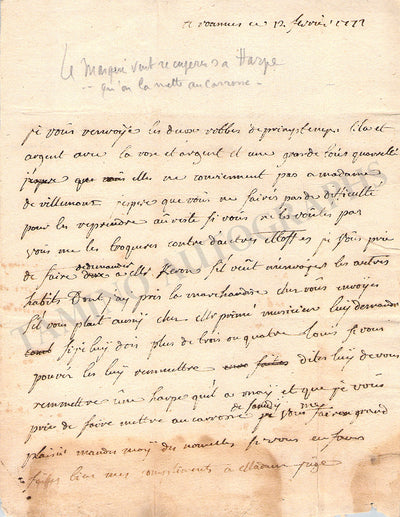 ce 12 février 1773
Le Marquis veut récupérer sa Harpe
qu'on la mette au carrosse
je vous renvoyé les deux robbes de printemps lila et
argent avec la rose et argent et une grande
elle ne conviennent pas a madame
de villemont que vous ne faires pas de difficulté
pour les reprendre au reste si vous ne les voulés pas
vous me les troquerés contre d'autres etoffes je vous prie
de faire demander a elle s'il veut m'envoyer les autres
habits Dont au pres la marchande ches vous envoyes
s'il vous plait aussy ches elle musicien luy demander
si je luy dois plus de trois ou quatre Louis si vous
pouvés les luy remettre dites luy de vous
remmettre une harpe qu'il a a moy et que je vous
prie de faire mettre au carrosse de samedy vous me grand
plaisir mandes moy des nouvelles si vous en
faites bien mes a
TAMINO AUTOGRAPHS